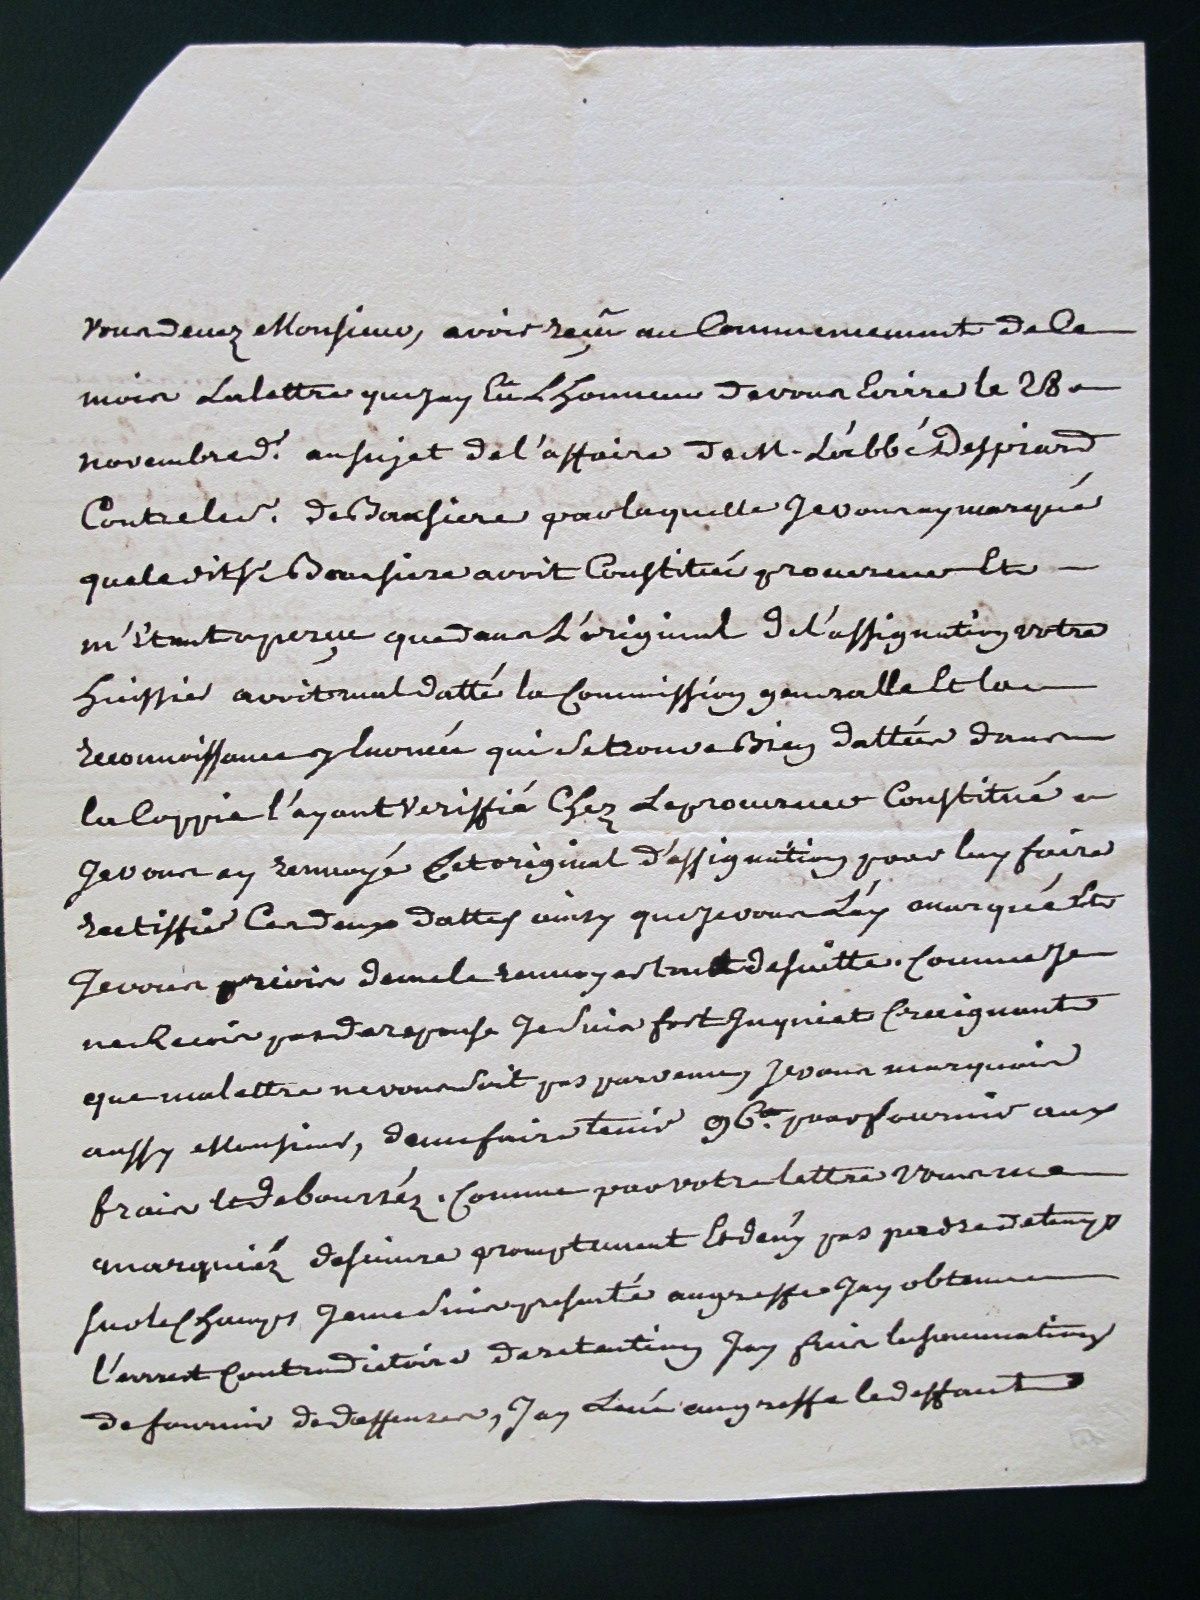 Vous devez Monsieur, avoir reçu au Commencement de Ce
mois La lettre que j'ay Eü L'honneur de vous Ecrire le 28
novembre dr. au sujet de l'affaire de M. L'abbé Despiard
Contre le sr. de Boussiere par laquelle Je vous ay marqué
que le dit Sr Boussiere avoit Constitué procureur Et
m'étant aperçu que dans L'original de l'assignation votre
huissier avoit mal datté la Commission generalle Et la
reconnoissance y Enoncée qui se trouve Bien dattées dans
la Coppie l'ayant veriffié Chez Le procureur Constitué
Je vous ay renvoyé Cet original d'assignation pour luy faire
rectiffier Ces deux dattes ainsy que Je vous L'ay marqué Et
Je vous priois de me le renvoyer tout de suitte. Comme Je
ne Recois pas de reponse Je suis fort Inquiet Craignant
que ma lettre ne vous soit pas parvenue, Je vous marquois
aussy Monsieur, de me faire tenir 96tt pour fournir aux
frais et debourséz. Comme par votre lettre vous me
marquiéz de suivre promptement Et de n'y pas perdre de temps
sur le Champs Je me suis presenté au greffe J'ay obtenu
l'arrest Contradictoire de retention J'ay fait la sommation
de fournir de deffenses, J'ay Levé au greffe le deffaut